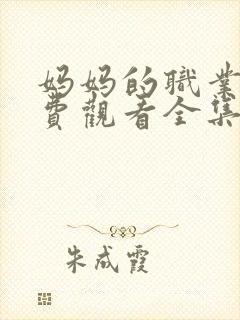 妈妈的職業
費觀看全集
朱成霞